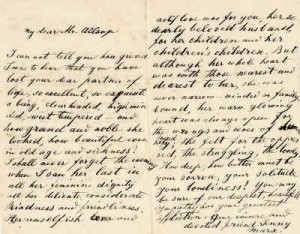 My dear Mr. Allsop
I can not tell you how grieved
I was to hear that you have
lost your dear partner of
life, so excellent, so exquisite
a being, clearheaded, highmin
ded, sweet tempered and
how grand and noble she
looked, how beautiful even
in old age and sickness!
I shall never forget the evening
when I saw her last in
all her feminine dignity
all her delicate considerate
kindness and friendliness
Her unselfish love and
love was for you, her so
dearly beloved husband,
for her children and her
children's children. But
although her whole heart
was with those nearest and
dearest to her, she was
never narrow minded in family
bounds, her warm glowing
heart was always open for
the wrongs and woes of
she felt for the
the struggling, the
How deep, how bitter must be
your sorrow, your solitude
your loneliness! You may
be sure of our deepest, heartfelt
sympathy in your greatest
affliction. Your sincere and
devoted friend, Jenny
Marx.